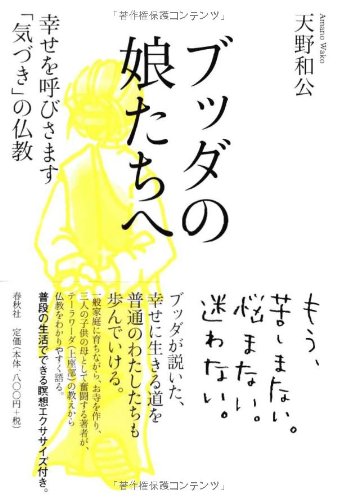 「著作権保護コンテンツ」
天野和公
Amano Wako
ブッダの
娘たちへ
幸せを呼びさます
「気づき」の仏教
もう、
苦しまない。
悩まない。
迷わない。
ブッダが説いた、
幸せに生きる道を
普通のわたしたちも
歩んでいける。
一般家庭に育ちながら、お寺を作り、
三人の子供の母として奮闘する著者が、
テーラワーダ(上座部)の教えから
仏教をわかりやすく語る。
普段の生活でできる瞑想エクササイズ付き。
春秋社 定価(本体一八〇〇円+税)
「著作権保護コンテンツ」